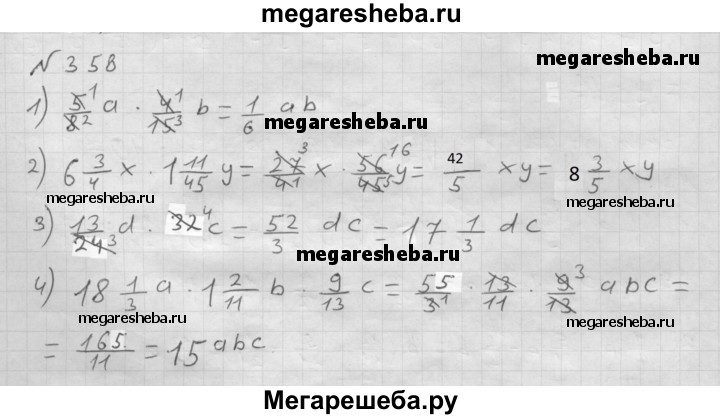 megaresheba.ru
№ 358
megaresheba.ru
1) 5/8 a · 4/15 b = 1/6 ab
megaresheba.ru
2) 6 3/4 x · 1 11/45 y = 27/4 x · 56/45 y = 42/5 xy = 8 3/5 xy
megaresheba.ru
megaresheba.ru
3) 13/24 d · 32 c = 52/3 dc = 17 1/3 dc
megaresheba.ru
4) 18 1/3 a · 1 2/11 b · 9/13 c = 55/3 · 13/11 · 9/13 abc =
megaresheba.ru
megaresheba.ru
= 165/11 = 15 abc
Мегарешеба.ру